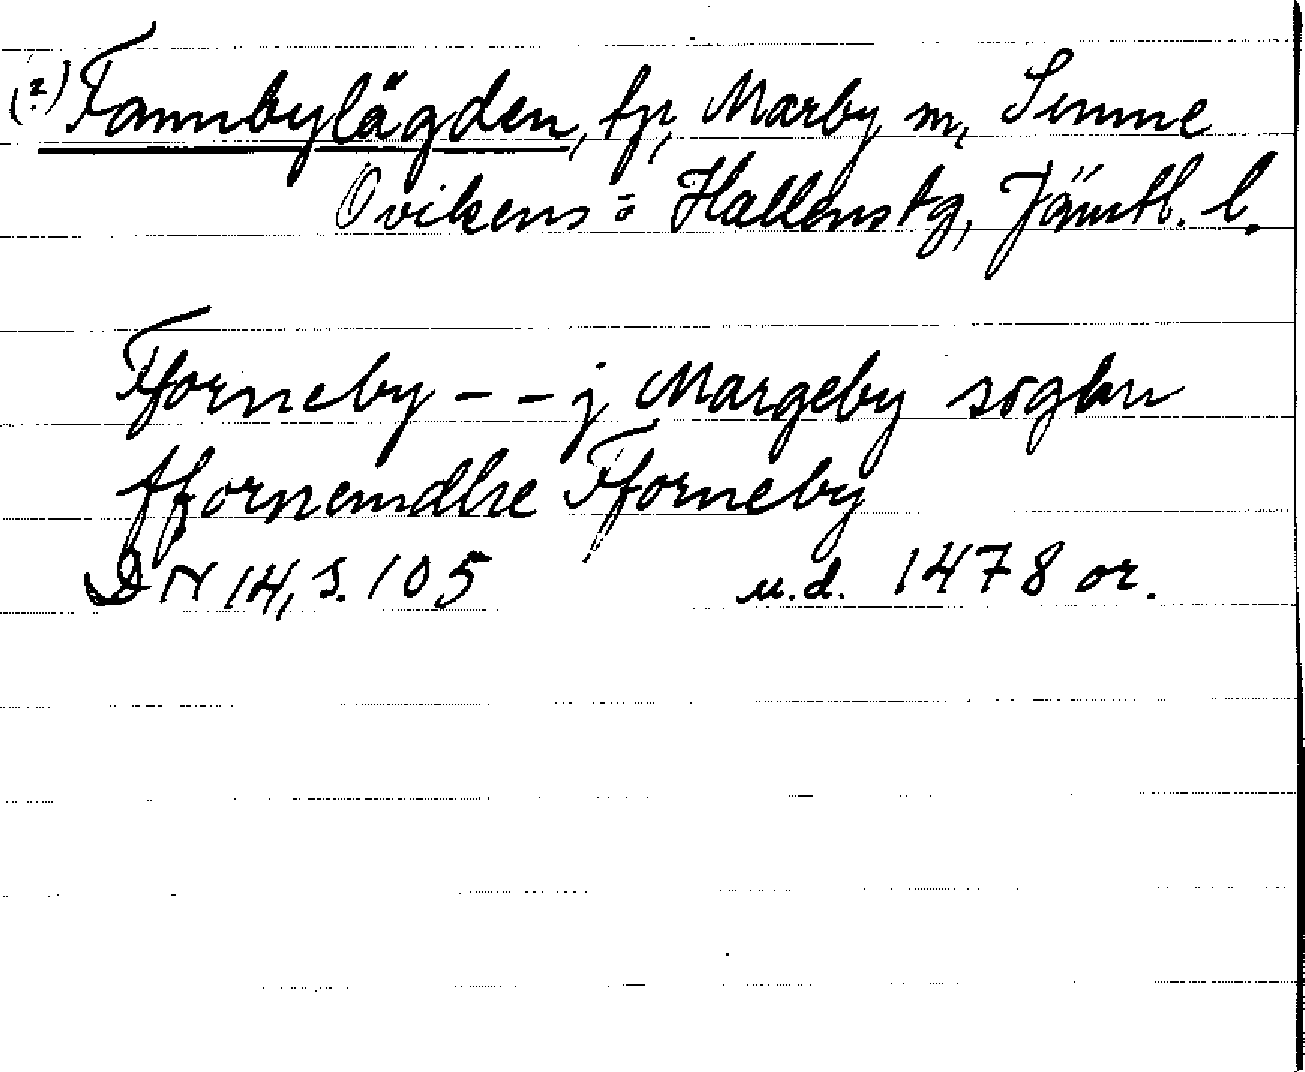 (?) Fannbylägden, tp, Marby m, Sunne
Ovikens o Hallens tg, Jämtl. l.
Fforneby - - j Margeby sogbn
ffornemdhe Fforneby
DN 14, S. 105 u.d. 1478 or.